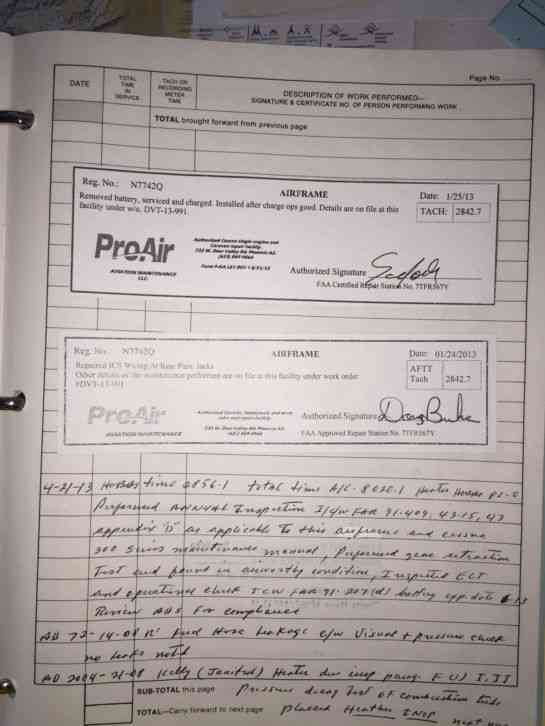 Page No.
DATE
TOTAL TIME IN SERVICE
TACH OR RECORDING METER TIME
DESCRIPTION OF WORK PERFORMED—
SIGNATURE & CERTIFICATE NO. OF PERSON PERFORMING WORK
TOTAL brought forward from previous page
Reg. No.: N7742Q AIRFRAME Date: 1/25/13
Removed battery, serviced and charged. Installed after charge ops good. Details are on file at this
facility under w/o. DVT-13-991. TACH: 2842.7
Pro Air
AVIATION MAINTENANCE
LLC
Authorized Signature
FAA Certified Repair Station No. 7TFR567Y
Reg. No.: N7742Q AIRFRAME Date: 01/24/2013
Repaired ICS Wiring At Rear Pass. Jacks
Other details of the maintenance performed are on file at this facility under work order
#DVT-13-991
AFTT
Tach 2842.7
Pro Air
AVIATION MAINTENANCE
Authorized Signature
FAA Approved Repair Station No. 7TFR567Y
4-21-13 Hobbs time 2856.1 total time A/C 8020.1 Heater Hobbs
Performed Annual Inspection I/A/W FAR 91-409, 43-15, 43
appendix "D" as applicable to this airframe and cessna
300 Series maintenance manual, Performed gear retraction
Test and found in airworthy condition, Inspected ELT
and operational check IAW FAR 91-207(d) battery exp date
Review ADS For compliance
AD 72-14-08 Fuel Hose Leakage c/w Visual + pressure check
no leaks noted
AD 2004-21-05 Kelly (Janitrol) Heater due insp
SUB-TOTAL this page Pressure decay Test of combustion tube
TOTAL—Carry forward to next page placed Heater INOP next